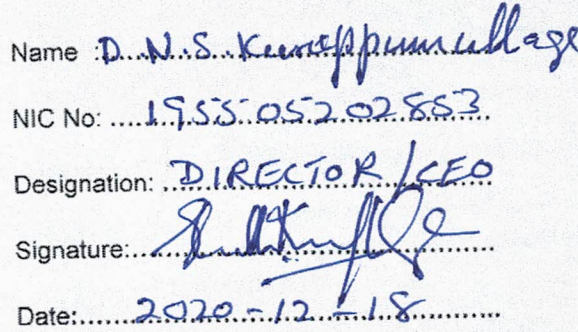 Name :D. N. S. Kuruppumullage
NIC No: 195505202853
Designation: DIRECTOR/CEO
Signature:
Date: 2020-12-18